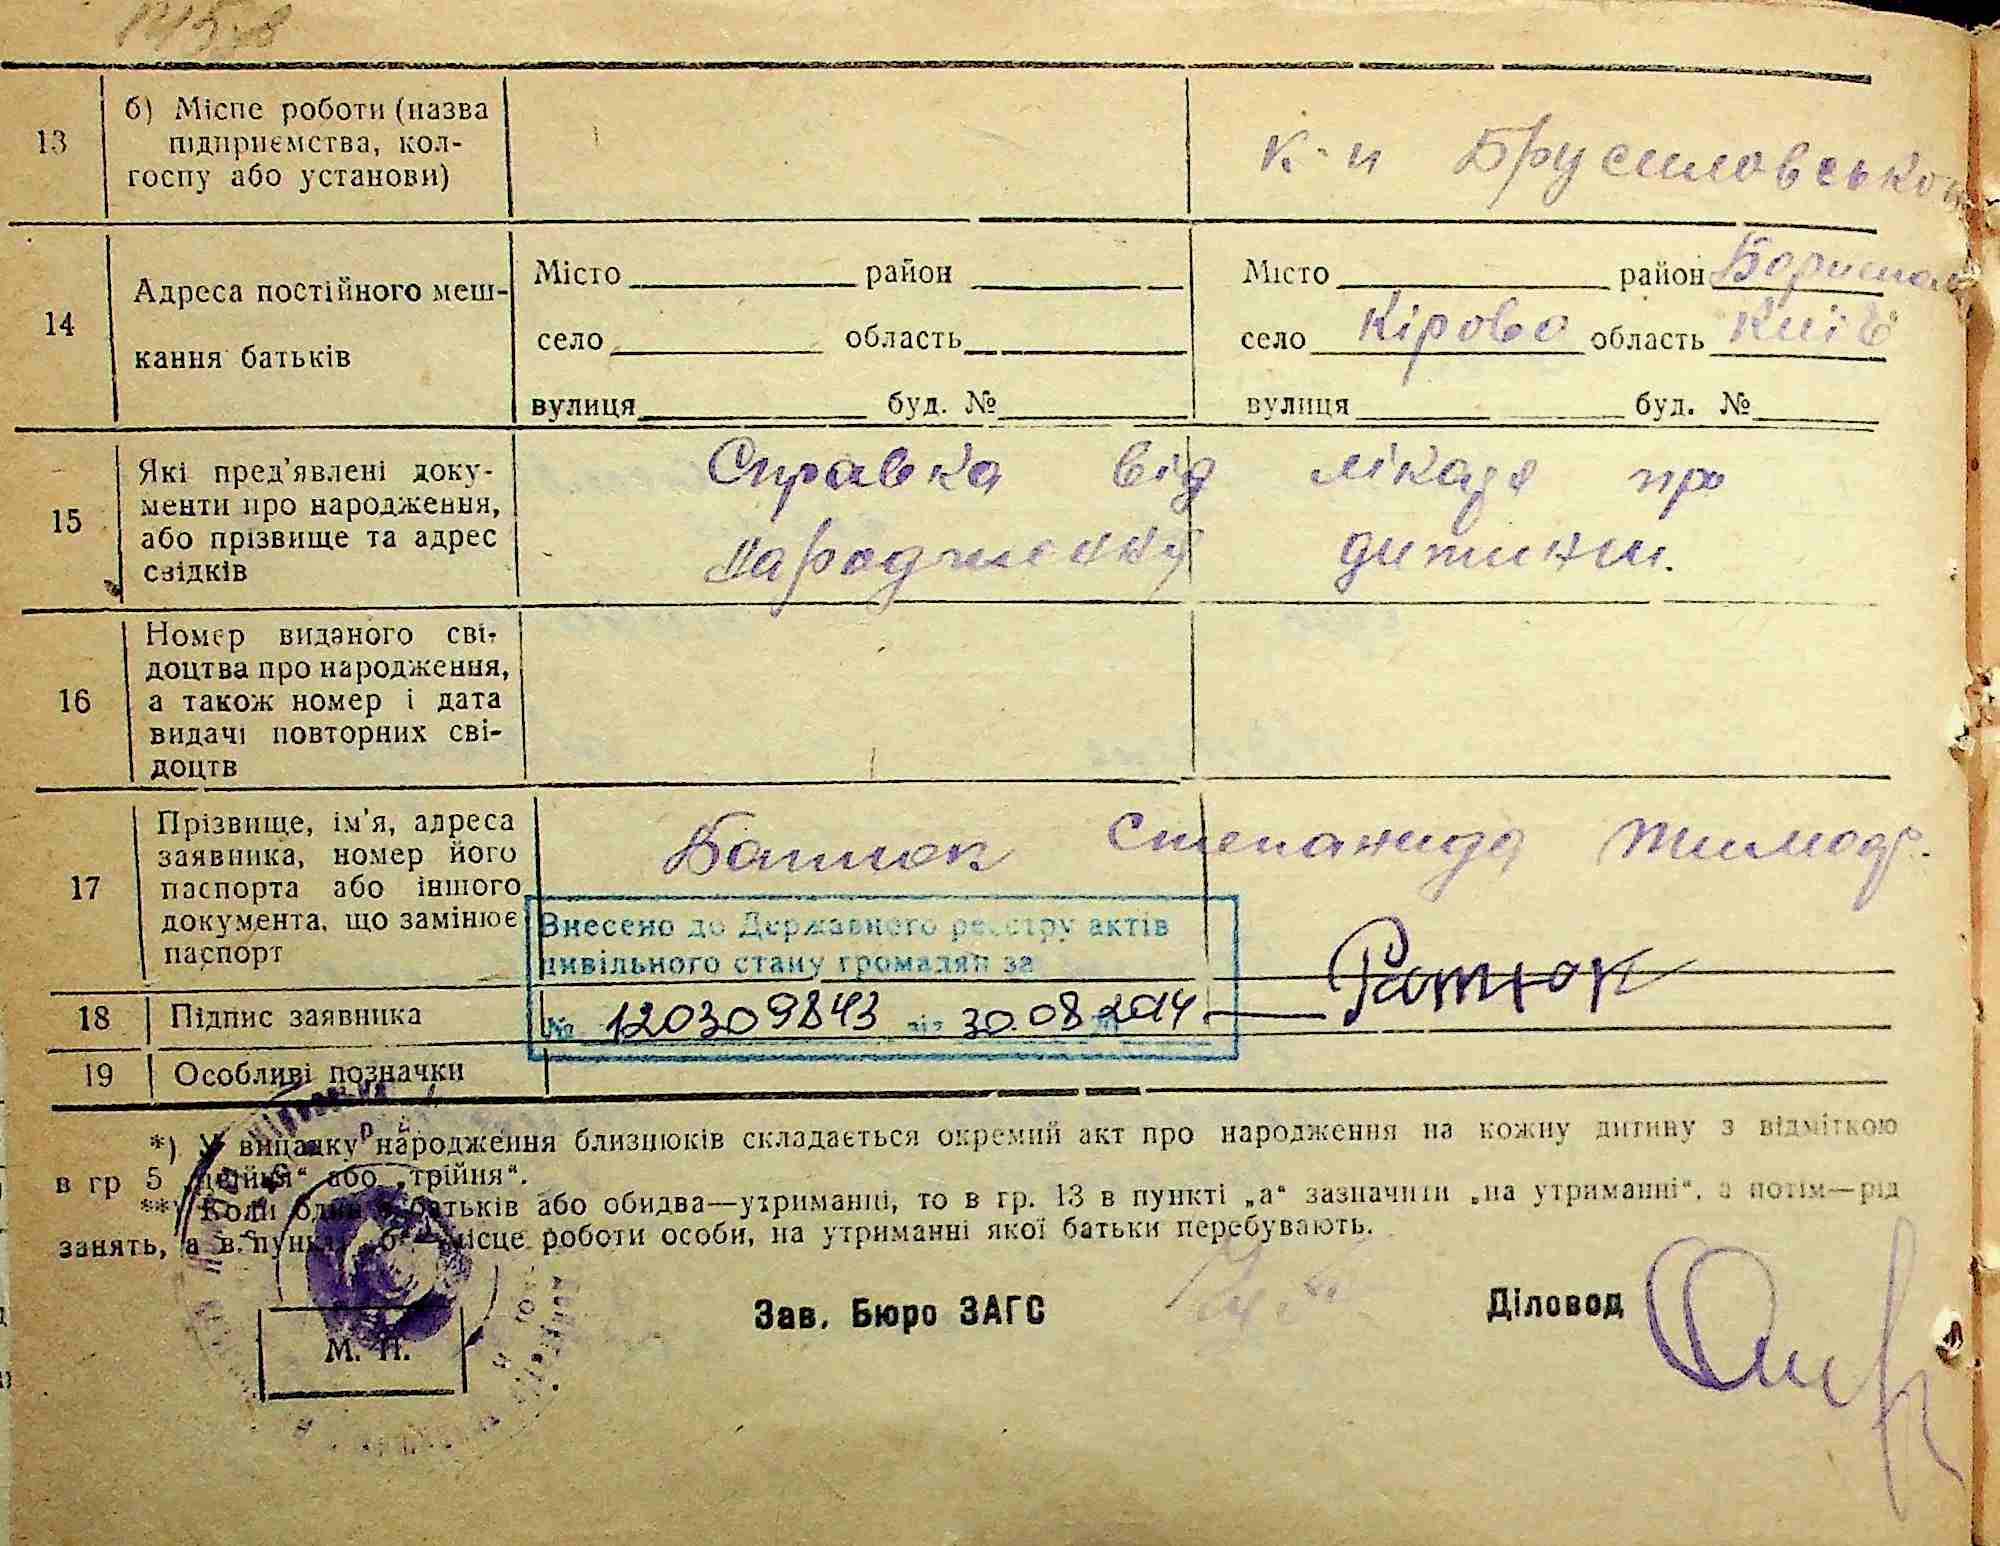 13
б) Місце роботи (назва
підприємства, кол-
госпу або установи)
к-п Брусиловського
14
Адреса постійного меш-
кання батьків
Місто район
село область
вулиця буд. №
Місто район Бориспол
село Кірово область Київ
вулиця буд. №
15
Які пред'явлені доку-
менти про народження,
або прізвище та адрес
свідків
Справка від лікаря про
народження дитини.
16
Номер виданого сві-
доцтва про народження,
а також номер і дата
видачі повторних сві-
доцтв
17
Прізвище, ім'я, адреса
заявника, номер його
паспорта або іншого
документа, що замінює
паспорт
Степанида Тимоф.
Внесено до Державного реєстру актів
цивільного стану громадян за
№ 120309843 від 30.08.2014
18
Підпис заявника
19
Особливі позначки
*) У випадку народження близнюків складається окремий акт про народження на кожну дитину з відміткою
в гр 5 „двійня“ або „трійня“.
**) Коли один з батьків або обидва—утриманці, то в гр. 13 в пункті „а“ зазначити „на утриманні“, а потім—рід
занять, а в пункті „б“—місце роботи особи, на утриманні якої батьки перебувають.
Зав. Бюро ЗАГС
Діловод
М. П.